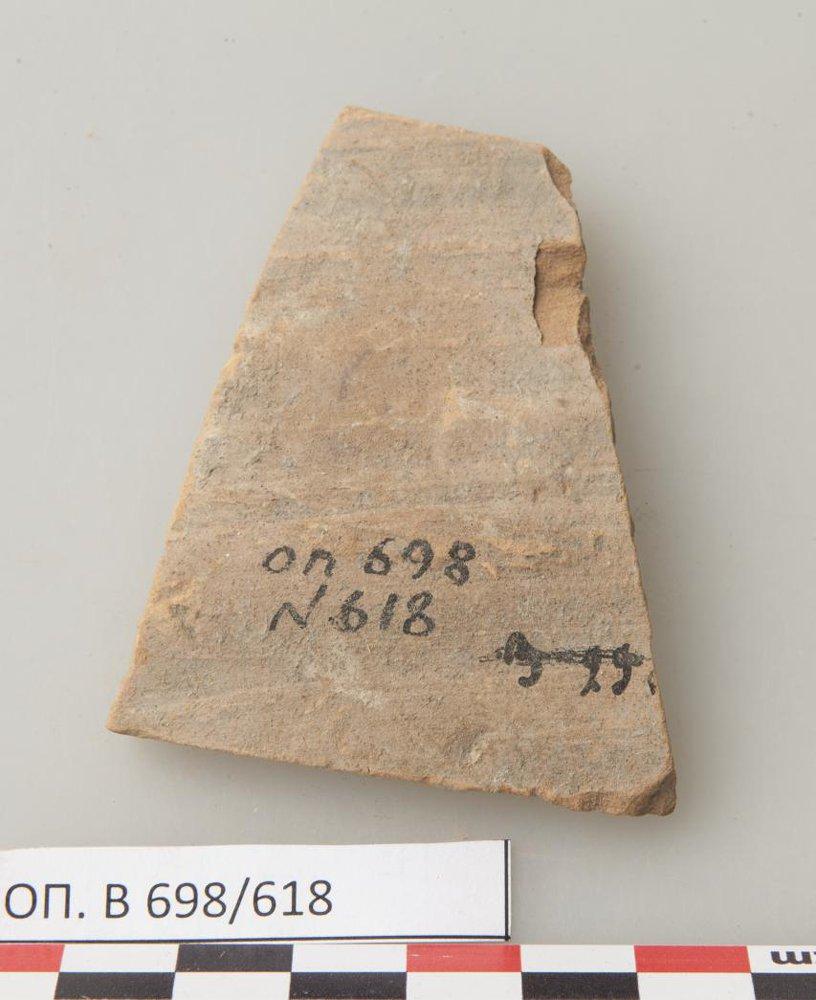 оп 698
N 618
ОП. В 698/618